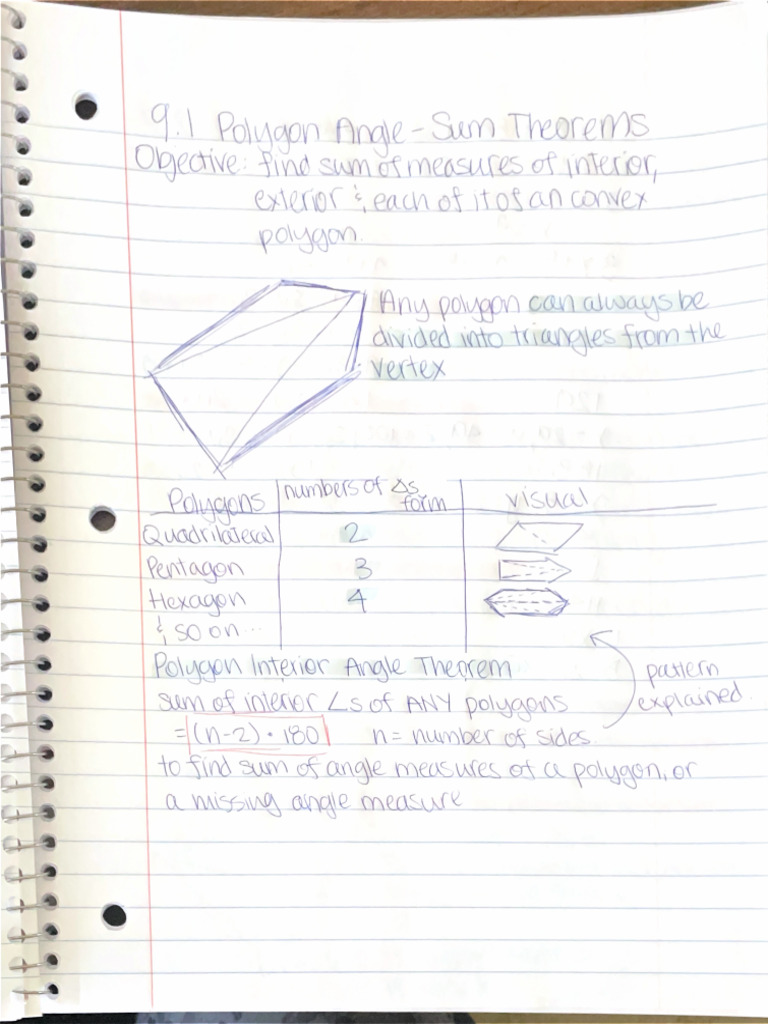 9.1 Polygon Angle-Sum Theorems
Objective: find sum of measures of interior,
exterior & each of it of an convex
polygon.
Any polygon can always be
divided into triangles from the
vertex
Polygons numbers of △s form visual
Quadrilateral 2
Pentagon 3
Hexagon 4
& so on...
Polygon Interior Angle Theorem
sum of interior ∠s of ANY polygons
= (n-2) • 180 n = number of sides.
to find sum of angle measures of a polygon, or
a missing angle measure
pattern
explained.